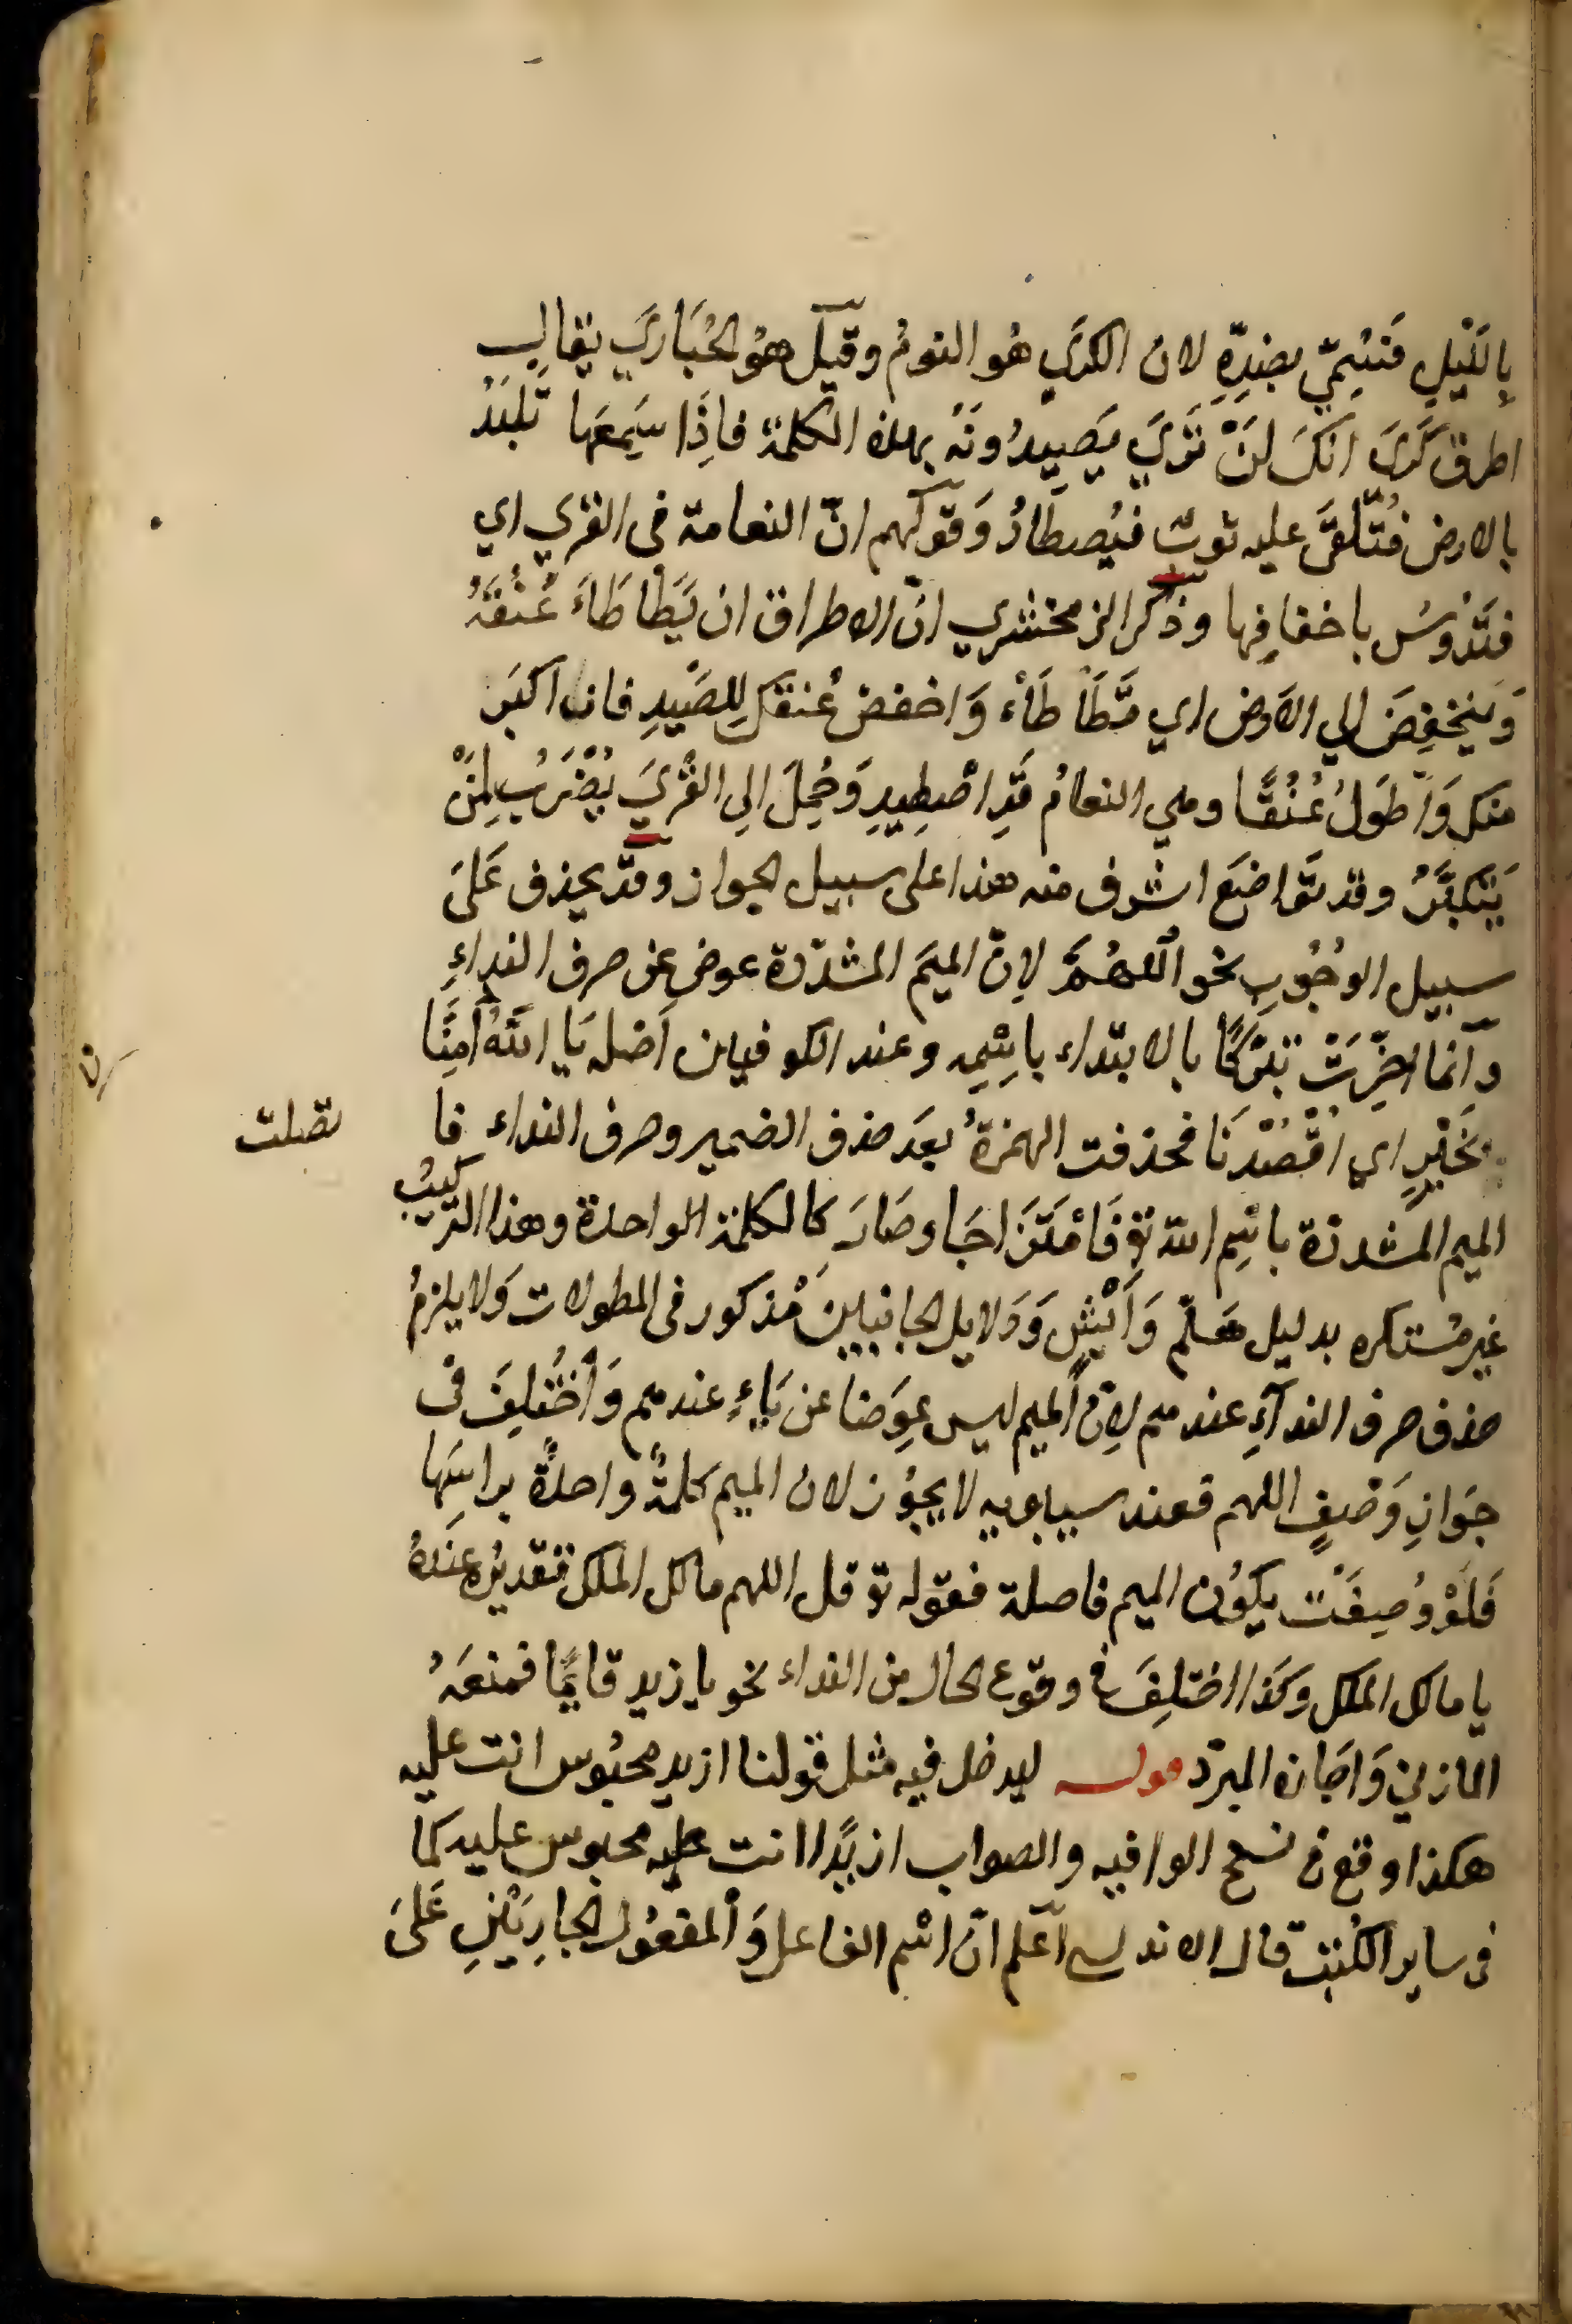 بِاللَّيْلِ فَسُمِّيَ بِضِدِّهِ لان الكرَي هُو النومُ وقيلَ هوُ الحُبَارَي يقالِ
اطرق كَرَى انكَ لَنْ تَرَيَ يَصِيدُونَهُ بهذه الكلمة فاِذَا سَمِعَهَا تَلَبَّدُ
بالارض فُتُلقَّي عليه ثوبٌ فيُصطَادُ وَقولهم انّ النعامة في القري اي
فتَدُوسُ باخفافِها وذكر الزمخشري انّ الاطراق ان يَّطَأطَاءَ عُنُقَهُ
وَينخفِضَ الي الاَرض اي تَّطَأْطَاْء وَاخفض عُنقكَ لِلصَّيدِ فان اكبَر
منكَ وَاَطوَلُ عُنُقًا وهي النعامُ قَدِ اصْطِيدِ وَحُمِلَ الِي القُرَيَ يُضْرَبُ لِمَنْ
يَتكبَّرُ وقد تَوَاضَع اشرف منه هذا على سبيل الجواز وقد يحذف عَلىَ
سبيل الوُجُوبِ نحو اَللَّهُمَّ لاِنّ الميمَ المشدّدة عوض عن حرف النداءِ
وانما اُخِّرَتْ تبرّكًا بالابتداء باِسْمِه وعند الكوفيين اَصله يَا اَللّٰهُ اُمَّنَا
بخَيْرٍ اي اقْصُدْنَا فحذفت الهمزةُ بعدَ حذف الضمير وحرف النداء فا
تصلت
الميم المشددة باسْمِ الله تع فَامْتَزَجَا وصَارَ كالكلمة الواحدة وهذا التركيبُ
غير مُستكره بدليل هَلمّ وَاَيْشٍ وَدَلايل الجانبيين مُذكور في المطولات وَلا يلزمُ
حذف حرف النداءِ عندهم لاِنّ الميم ليس عِوَضا عن يَاءٍ عندهم وَاخْتُلِفَ في
جَوازِ وَصْفِ اللهم فعند سيبويه لا يجوُز لان الميم كلمةٌ واحدةٌ براسَِها
فَلَوْ وُصِفَتْ يكوُن الميم فاصلة فقوله تع قل اللهم مالك الملك فتقديره عندهُ
يا مالك الملك وكذا اختلِفَ في وقوع الحال من النداء نحو يا زيد قايمًا فمنعَهُ
المازني وَاجَازه المبرّد قولـه ليدخل فيه مثل قولنا ازيد محبُوس انت عليه
هكذا وقع في نسخ الوافيه والصواب ازيدًا انت عليه محبوس عليه كما
في ساير الكُتب قال الاندلسي اَعلم انّ اسْم الفاعل وَالمفعُول الجارِيَيْنِ عَلىَ